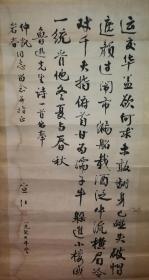 运交华盖欲何求未敢翻身已碰头破帽
遮颜过闹市漏船载酒泛中流横眉冷
对千夫指俯首甘为孺子牛躲进小楼成
一统管他冬夏与春秋
鲁迅先生诗一首书奉
同志留念并指正